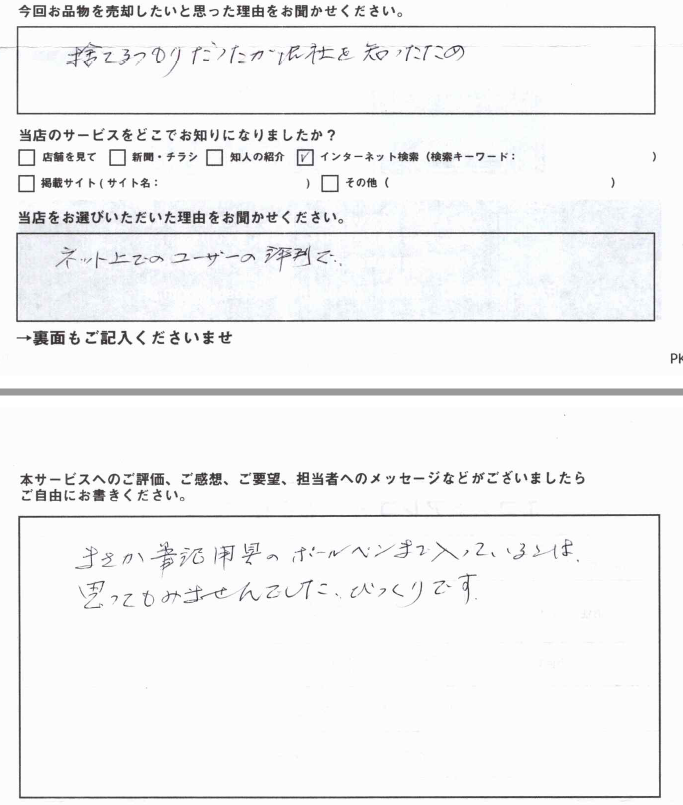 今回お品物を売却したいと思った理由をお聞かせください。
捨てるつもりだったが御社を知ったため
当店のサービスをどこでお知りになりましたか？
□ 店舗を見て □ 新聞・チラシ □ 知人の紹介 ☑ インターネット検索（検索キーワード： ）
□ 掲載サイト（サイト名： ） □ その他（ ）
当店をお選びいただいた理由をお聞かせください。
ネット上でのユーザーの評判で.
→裏面もご記入くださいませ
PK
本サービスへのご評価、ご感想、ご要望、担当者へのメッセージなどがございましたら
ご自由にお書きください。
まさか筆記用具のボールペンまで入っているとは、
思ってもみませんでした、びっくりです.